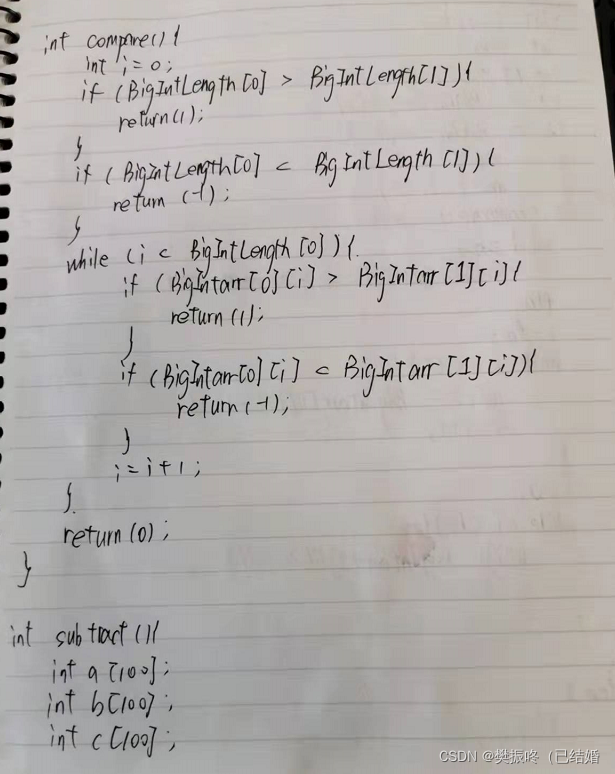 int compare(){
int i=0;
if (BigIntLength[0] > BigIntLength[1]){
return(1);
}
if (BigIntLength[0] < BigIntLength [1]){
return (-1);
}
while (i < BigIntLength[0]){
if (BigIntarr[0][i] > BigIntarr[1][i]{
return(1);
}
if (BigIntarr[0][i] < BigIntarr [1][i]){
return(-1);
}
i=i+1;
}
return(0);
}
int subtract(){
int a[100];
int b[100];
int c[100];
CSDN @樊振咚（已结婚